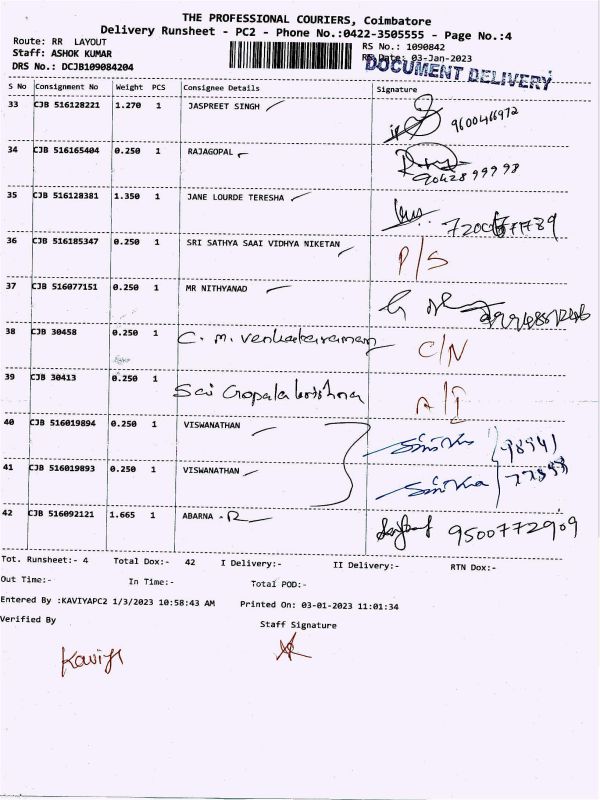 THE PROFESSIONAL COURIERS, Coimbatore
Delivery Runsheet - PC2 - Phone No.:0422-3505555 - Page No.:4
Route: RR LAYOUT
RS No.: 1090842
Staff: ASHOK KUMAR
RS Date: 03-Jan-2023
DRS No.: DCJB109084204
DOCUMENT DELIVERY
S No Consignment No Weight PCS Consignee Details Signature
33 CJB 516128221 1.270 1 JASPREET SINGH 9600466972
34 CJB 516165404 0.250 1 RAJAGOPAL 9042899998
35 CJB 516128381 1.350 1 JANE LOURDE TERESHA
36 CJB 516185347 0.250 1 SRI SATHYA SAAI VIDHYA NIKETAN P/S
37 CJB 516077151 0.250 1 MR NITHYANAD
38 CJB 30458 0.250 1 C. M. Venkataraman C/N
39 CJB 30413 0.250 1 Sai Gopalakrishna A/I
40 CJB 516019894 0.250 1 VISWANATHAN 98941
41 CJB 516019893 0.250 1 VISWANATHAN
42 CJB 516092121 1.665 1 ABARNA - R 9500772909
Tot. Runsheet:- 4 Total Dox:- 42 I Delivery:- II Delivery:- RTN Dox:-
Out Time:- In Time:- Total POD:-
Entered By :KAVIYAPC2 1/3/2023 10:58:43 AM Printed On: 03-01-2023 11:01:34
Verified By Staff Signature
Kaviya